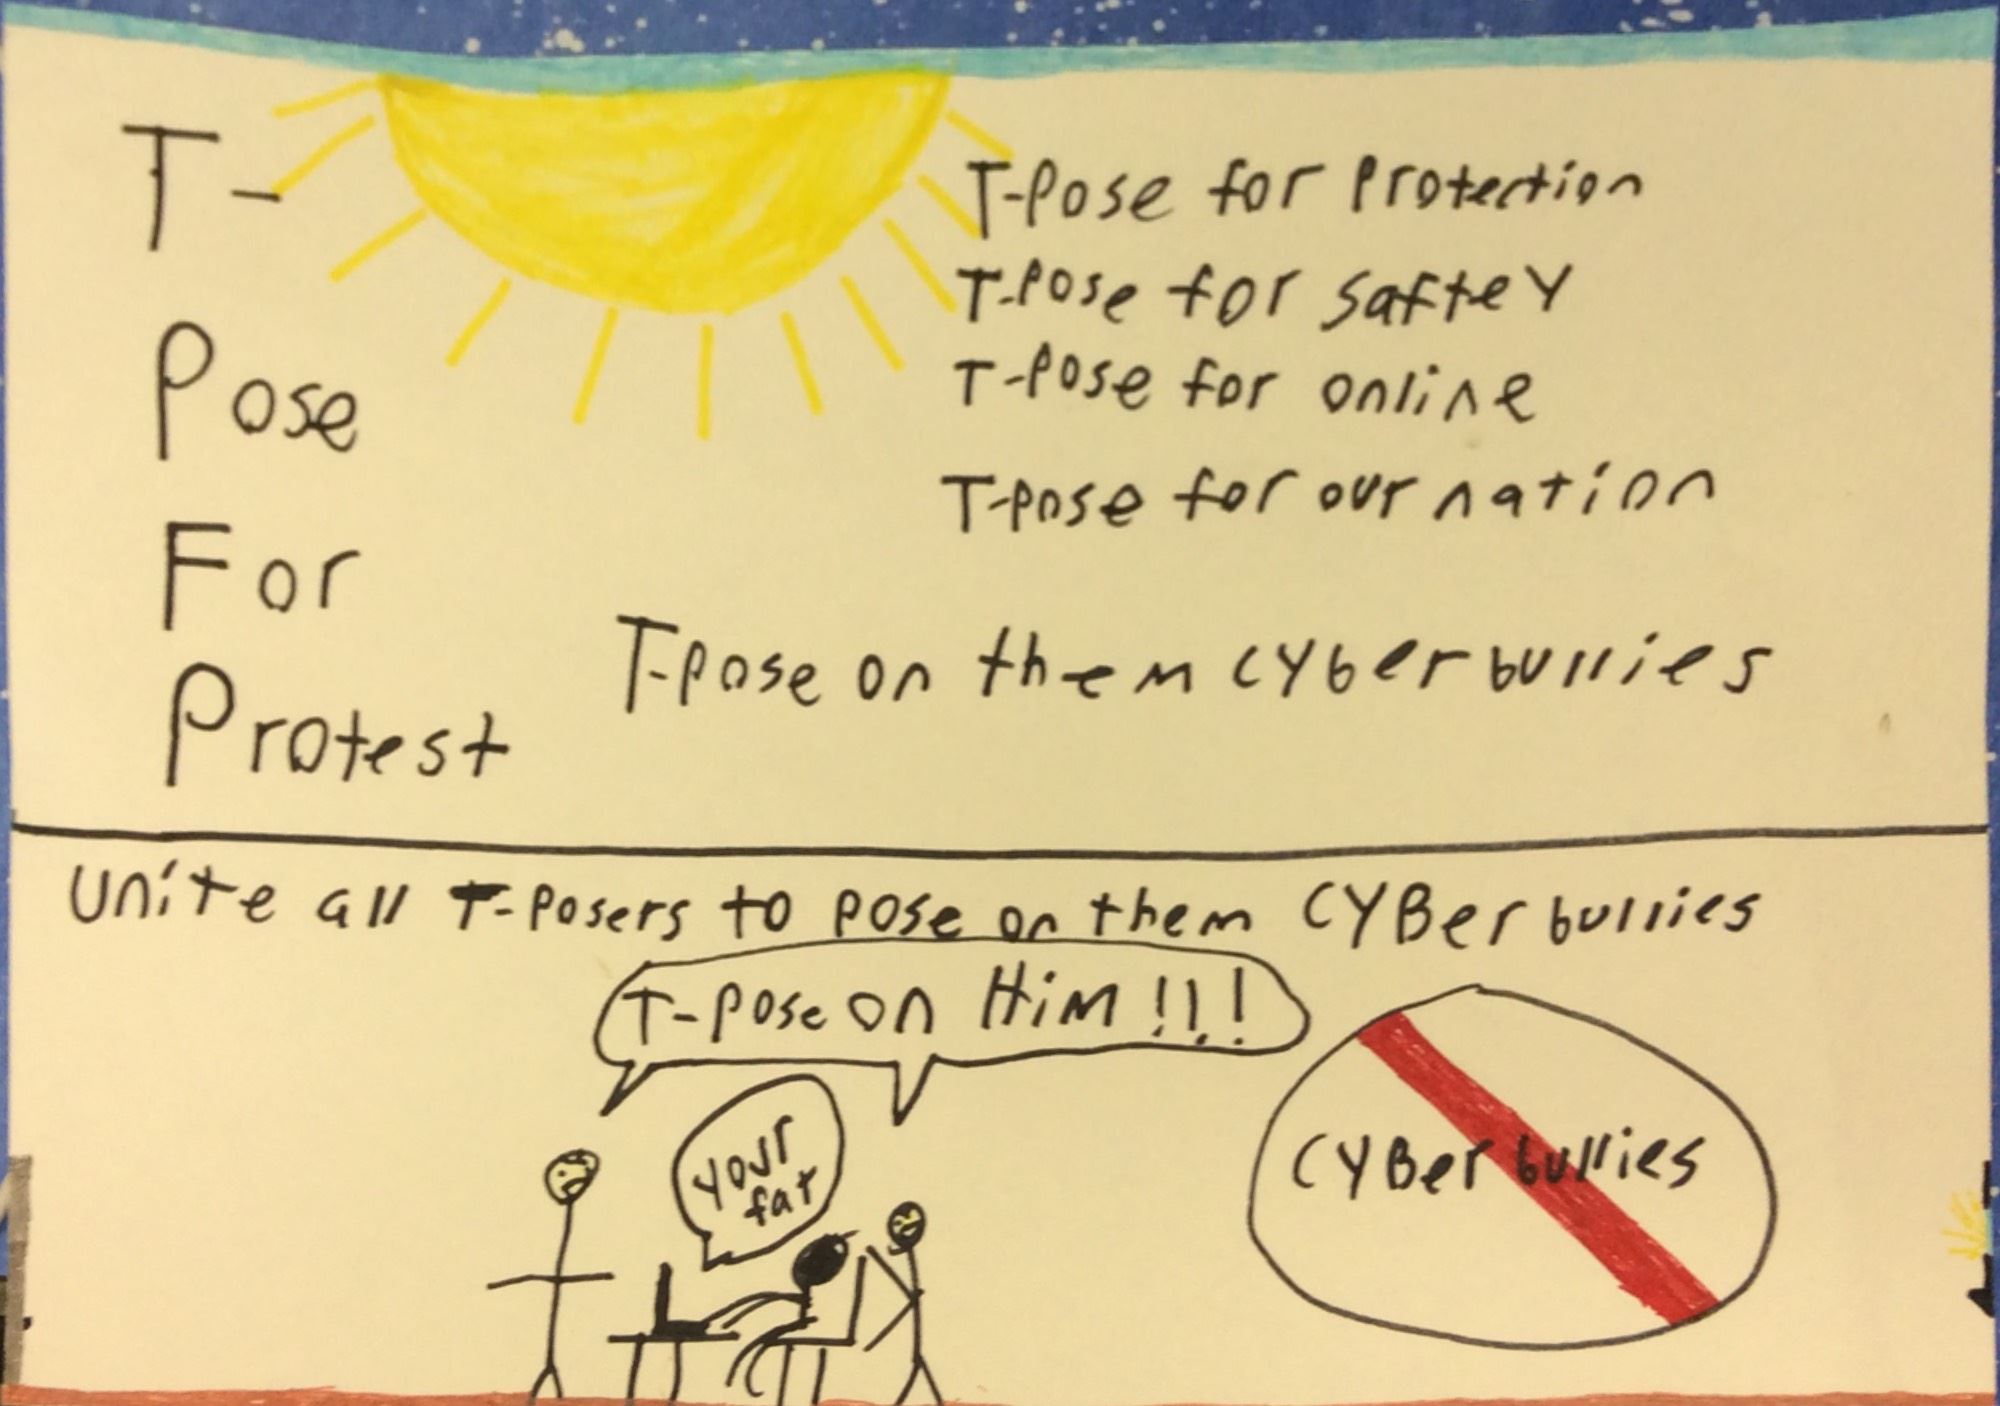 T-
Pose
For
Protest
T-Pose for Protection
T-Pose for saftey
T-Pose for online
T-pose for our nation
T-pose on them cyber bullies
unite all T-Posers to pose on them CYBer bullies
T-Pose on HiM!!!
your
fat
CYBer bullies